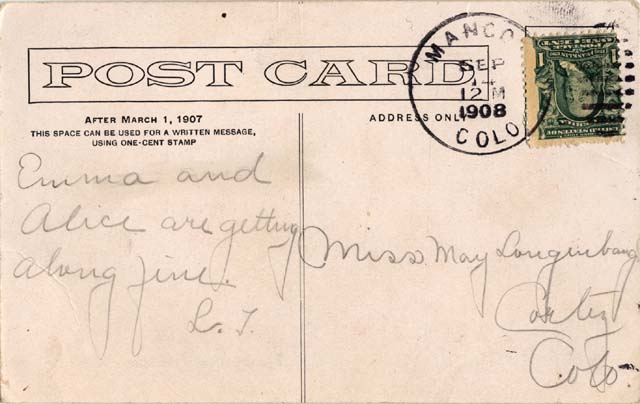 POST CARD
AFTER MARCH 1, 1907
THIS SPACE CAN BE USED FOR A WRITTEN MESSAGE,
USING ONE-CENT STAMP
ADDRESS ONLY
MANCOS
SEP
14
12 M
1908
COLO
Emma and
Alice are getting
along fine.
L. T.
Miss May
Cortez
Colo.